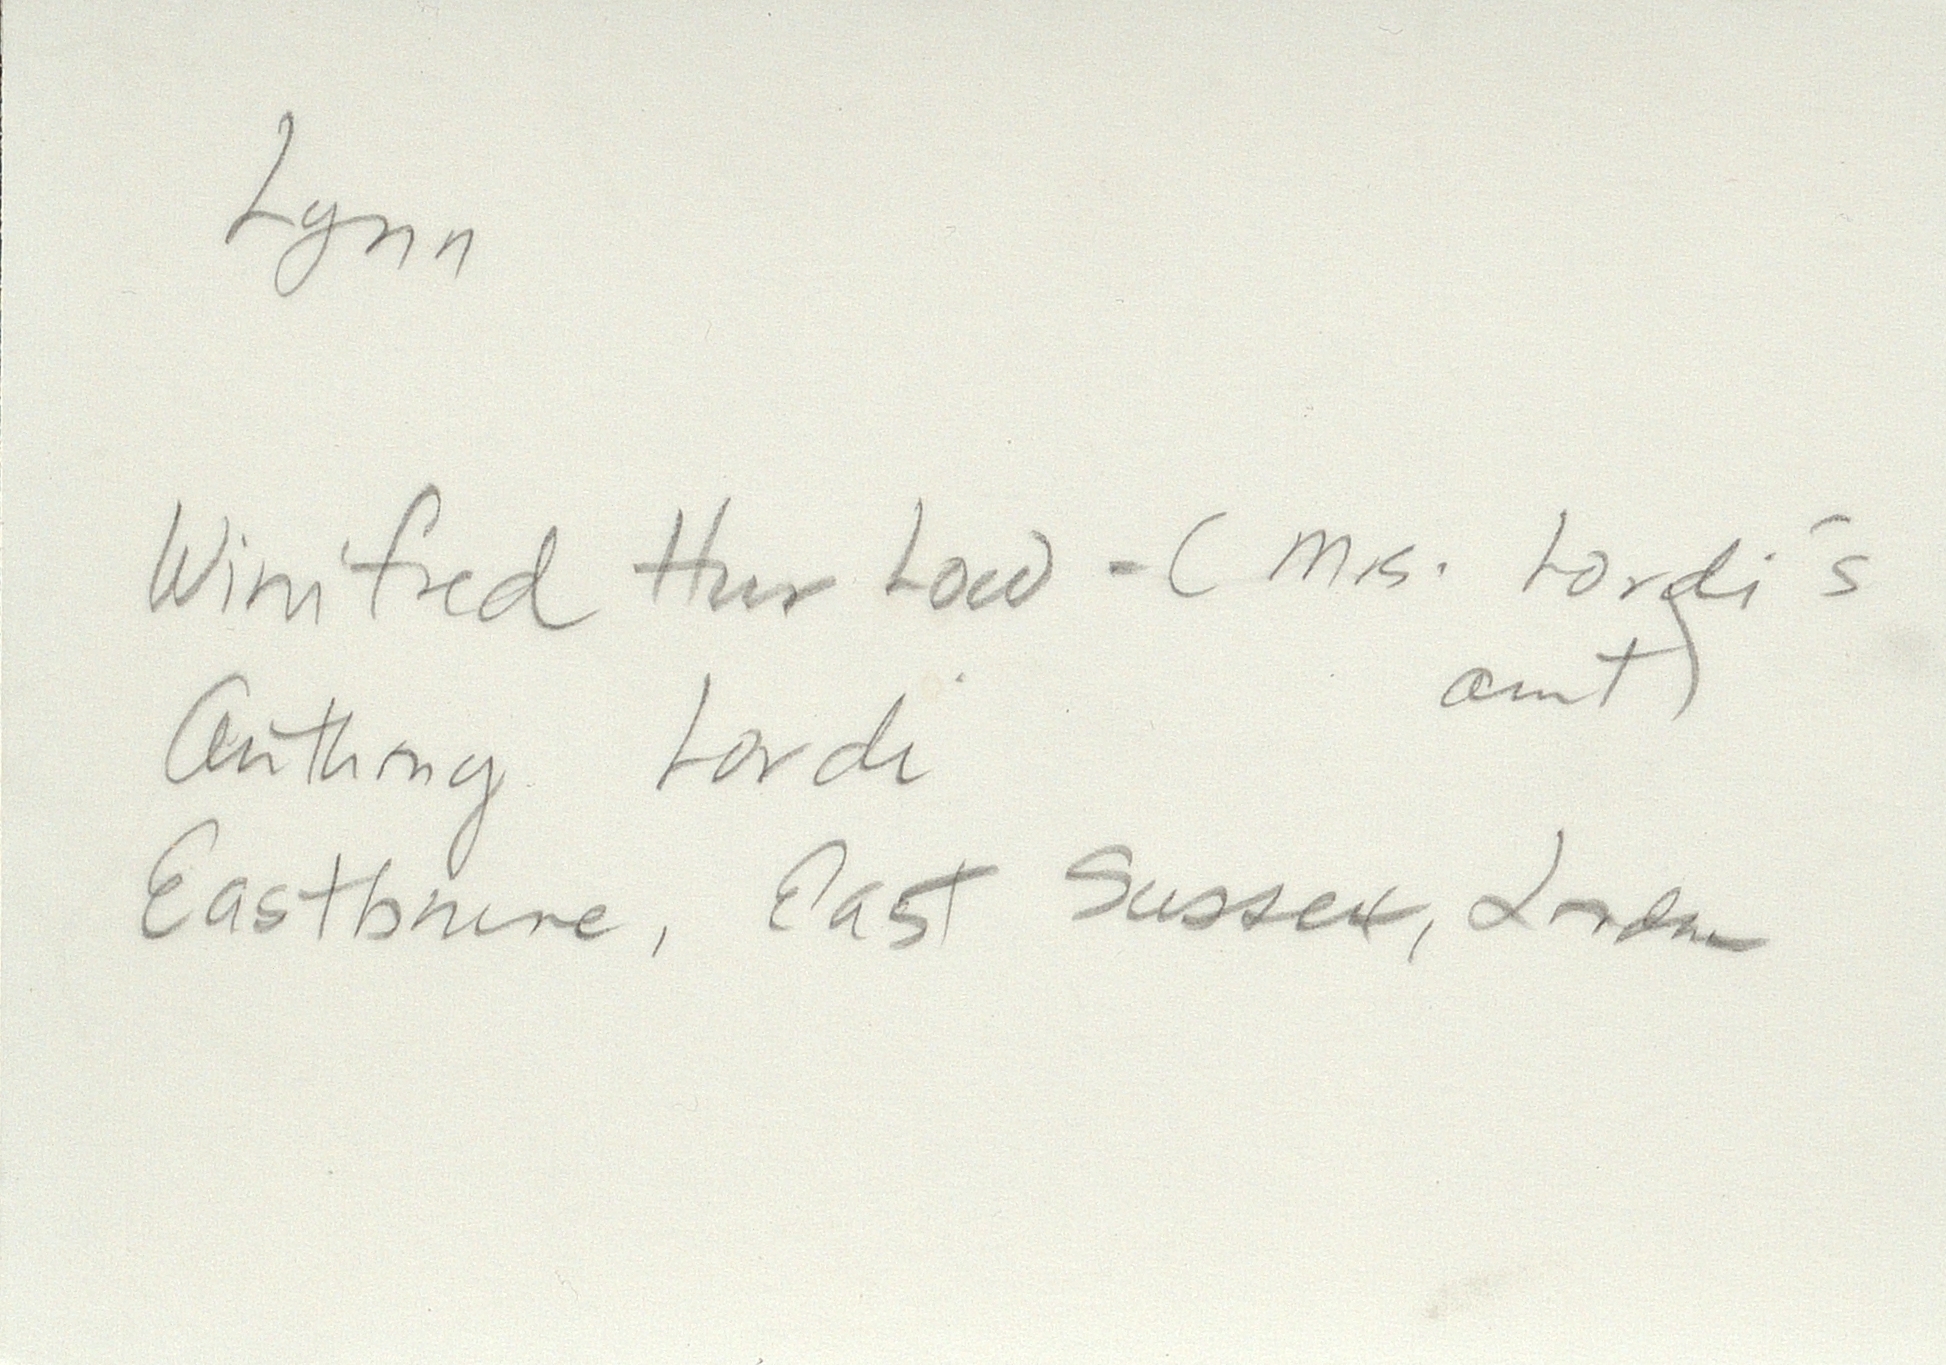 Lynn
Winifred Hur Low - (Mrs. Lordi's
aunt)
Anthony Lordi
Eastbourne, East Sussex, London